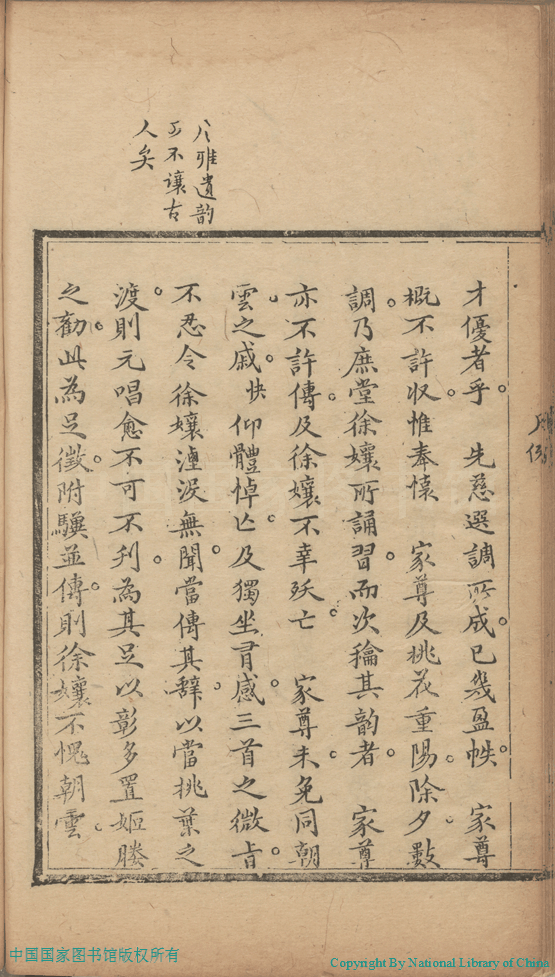 雅遺韵
不讓古
人矣
才優者乎 先慈選調所成已幾盈帙 家尊
概不許収惟奉懷 家尊及桃花重陽除夕數
調乃庶堂徐孃所誦習而次其韵者 家尊
亦不許傳及徐孃不幸殀亡 家尊未免同朝
雲之戚快仰體悼亡及獨坐有感三首之微旨
不忍令徐孃湮没無聞當傳其辭以當桃葉之
渡則元唱愈不可不刋為其足以彰多置姬媵
之勸此為足徵附驥並傳則徐孃不愧朝雲
中国国家图书馆版权所有
Copyright By National Library of China